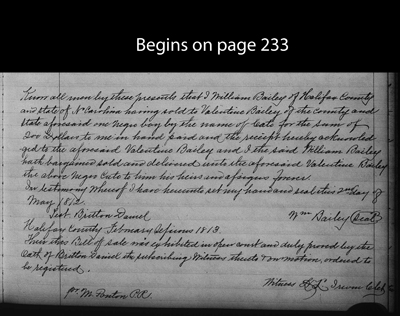 Begins on page 233
Know all men by these presents that I William Bailey of Halifax County
and State of N Carolina having sold to Valentine Bailey of the county and
State aforesaid one Negro boy by the name of Cato for the sum of
200 Dollars to me in hand paid and the receipt hereby acknowled
ged to the aforesaid Valentine Bailey and I the said William Bailey
hath bargained sold and delivered unto the aforesaid Valentine Bailey
the above Negro Cato to him his heirs and assigns forever.
In testimony Whereof I have hereunto set my hand and seal this 2nd day of
May 1812
Test. Britton Daniel Wm Bailey (Seal)
Halifax County February Sessions 1813.
Then this Bill of Sale was exhibited in open court and duly proved by the
Oath of Britton Daniel the subscribing Witness thereto & on motion, ordered to
be registered.
Witness
pr. M. Ponton P.R.